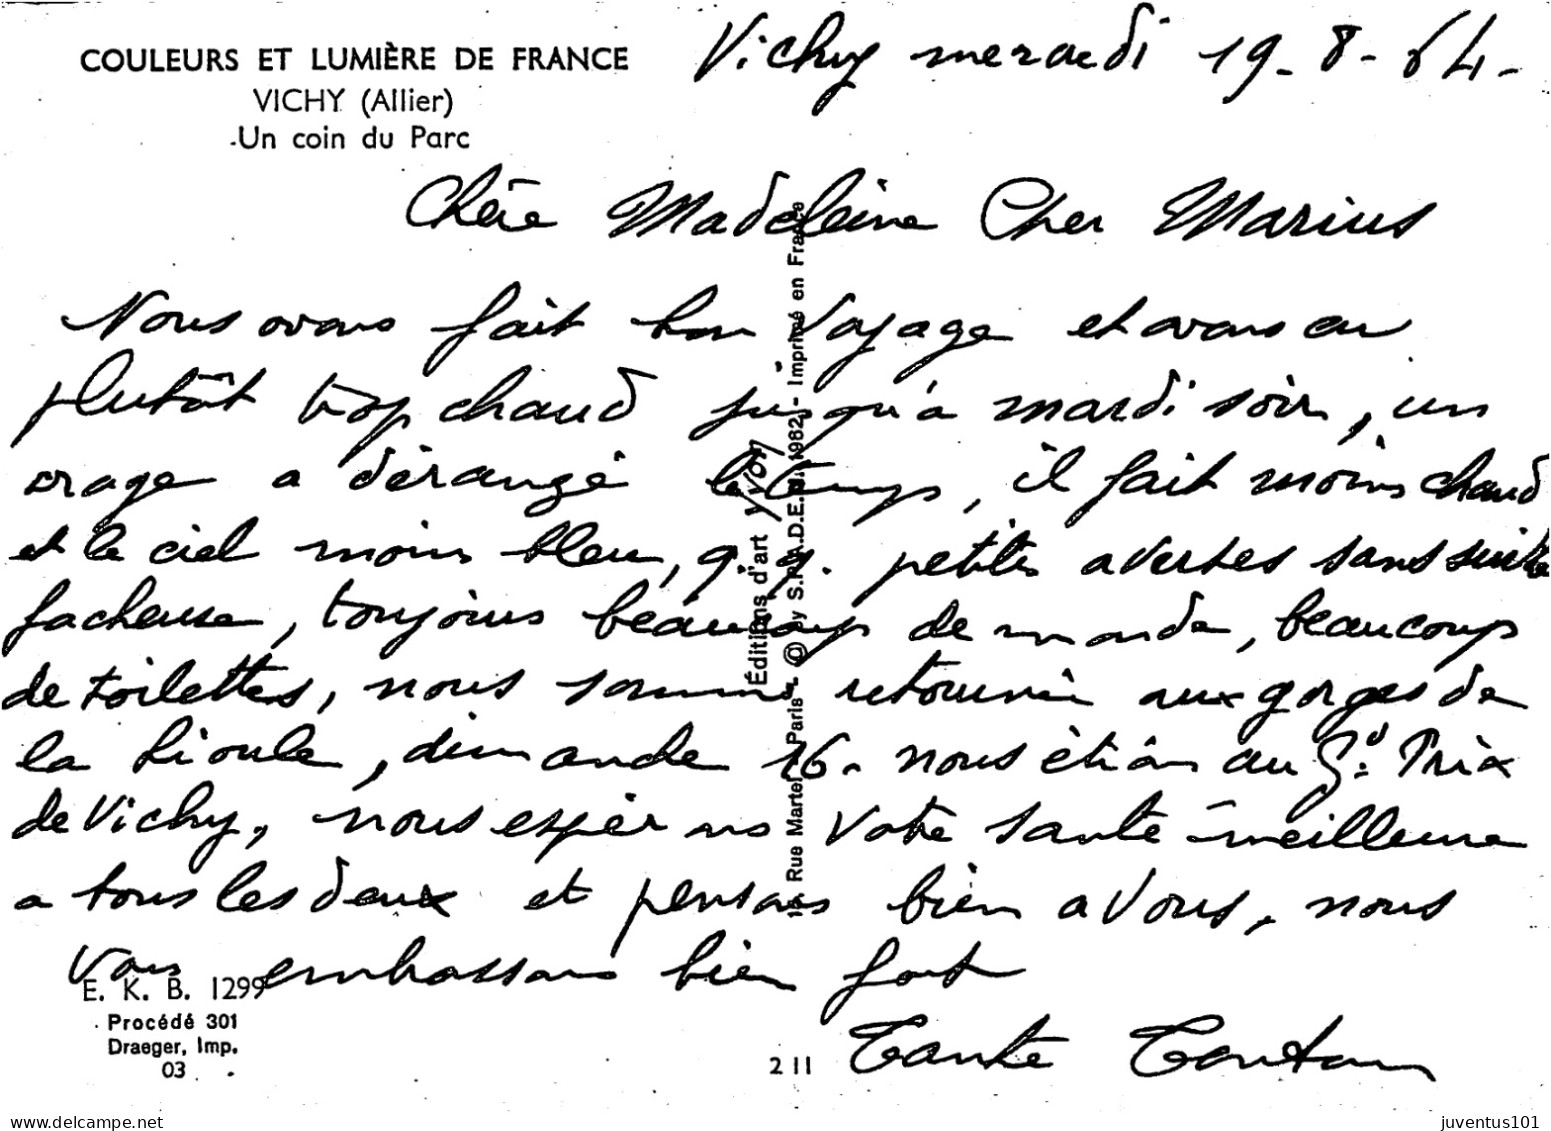 COULEURS ET LUMIÈRE DE FRANCE
VICHY (Allier)
Un coin du Parc
Vichy mercredi 19-8-64-
Chère Madeleine Cher Marius
Nous avons fait bon Voyage et avons eu
plutôt trop chaud jusqu'à mardi soir, un
orage a dérangé le temps, il fait moins chaud
et le ciel moins bleu, q.q. petites averses sans suite
facheuse, toujours beaucoup de monde, beaucoup
de toilettes, nous sommes retournés aux gorges de
la Sioule, dimanche 16- nous étions au Gd Prix
de Vichy, nous espérons Votre santé meilleure
a tous les deux et pensons bien a Vous, nous
Vous embrassons bien fort
Tante Tonton
Éditions d'art YVON
15, Rue Martel, Paris - © by S.P.A.D.E.M. 1962 - Imprimé en France
E. K. B. 1299
Procédé 301
Draeger, Imp.
03
2 11
www.delcampe.net
juventus101